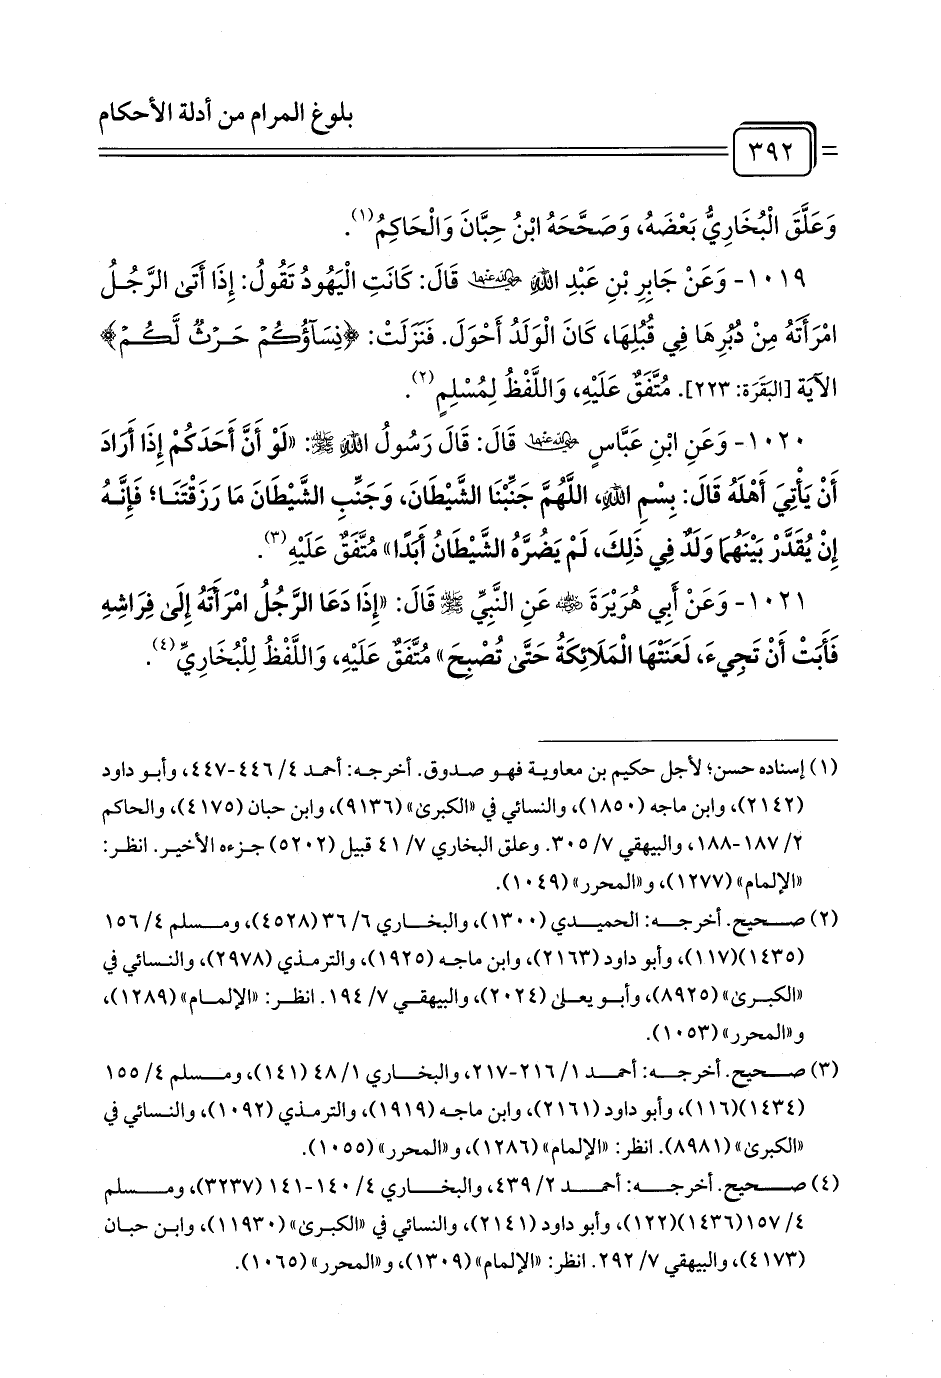 بلوغ المرام من أدلة الأحكام
٣٩٢
وَعَلَّقَ الْبُخَارِيُّ بَعْضَهُ، وَصَحَّحَهُ ابْنُ حِبَّانَ وَالْحَاكِمُ(١).
١٠١٩- وَعَنْ جَابِرِ بْنِ عَبْدِ اللهِ رضي الله عنهما قَالَ: كَانَتِ الْيَهُودُ تَقُولُ: إِذَا أَتَى الرَّجُلُ
امْرَأَتَهُ مِنْ دُبُرِهَا فِي قُبُلِهَا، كَانَ الْوَلَدُ أَحْوَلَ. فَنَزَلَتْ: ﴿نِسَآؤُكُمْ حَرْثٌ لَّكُمْ﴾
الآيَةَ [البَقَرَة: ٢٢٣]. مُتَّفَقٌ عَلَيْهِ، وَاللَّفْظُ لِمُسْلِمٍ(٢).
١٠٢٠- وَعَنِ ابْنِ عَبَّاسٍ رضي الله عنهما قَالَ: قَالَ رَسُولُ اللهِ ﷺ: «لَوْ أَنَّ أَحَدَكُمْ إِذَا أَرَادَ
أَنْ يَأْتِيَ أَهْلَهُ قَالَ: بِسْمِ اللهِ، اللَّهُمَّ جَنِّبْنَا الشَّيْطَانَ، وَجَنِّبِ الشَّيْطَانَ مَا رَزَقْتَنَا؛ فَإِنَّهُ
إِنْ يُقَدَّرْ بَيْنَهُمَا وَلَدٌ فِي ذَلِكَ، لَمْ يَضُرَّهُ الشَّيْطَانُ أَبَدًا» مُتَّفَقٌ عَلَيْهِ(٣).
١٠٢١- وَعَنْ أَبِي هُرَيْرَةَ رضي الله عنه عَنِ النَّبِيِّ ﷺ قَالَ: «إِذَا دَعَا الرَّجُلُ امْرَأَتَهُ إِلَىٰ فِرَاشِهِ
فَأَبَتْ أَنْ تَجِيءَ، لَعَنَتْهَا الْمَلَائِكَةُ حَتَّىٰ تُصْبِحَ» مُتَّفَقٌ عَلَيْهِ، وَاللَّفْظُ لِلْبُخَارِيِّ(٤).
(١) إسناده حسن؛ لأجل حكيم بن معاوية فهو صدوق. أخرجه: أحمد ٤/ ٤٤٦-٤٤٧، وأبو داود
(٢١٤٢)، وابن ماجه (١٨٥٠)، والنسائي في «الكبرىٰ» (٩١٣٦)، وابن حبان (٤١٧٥)، والحاكم
٢/ ١٨٧-١٨٨، والبيهقي ٧/ ٣٠٥. وعلق البخاري ٧/ ٤١ قبيل (٥٢٠٢) جزءه الأخير. انظر:
«الإلمام» (١٢٧٧)، و«المحرر» (١٠٤٩).
(٢) صحيح. أخرجه: الحميدي (١٣٠٠)، والبخاري ٦/ ٣٦ (٤٥٢٨)، ومسلم ٤/ ١٥٦
(١٤٣٥)(١١٧)، وأبو داود (٢١٦٣)، وابن ماجه (١٩٢٥)، والترمذي (٢٩٧٨)، والنسائي في
«الكبرىٰ» (٨٩٢٥)، وأبو يعلىٰ (٢٠٢٤)، والبيهقي ٧/ ١٩٤. انظر: «الإلمام» (١٢٨٩)،
و«المحرر» (١٠٥٣).
(٣) صحيح. أخرجه: أحمد ١/ ٢١٦-٢١٧، والبخاري ١/ ٤٨ (١٤١)، ومسلم ٤/ ١٥٥
(١٤٣٤)(١١٦)، وأبو داود (٢١٦١)، وابن ماجه (١٩١٩)، والترمذي (١٠٩٢)، والنسائي في
«الكبرىٰ» (٨٩٨١). انظر: «الإلمام» (١٢٨٦)، و«المحرر» (١٠٥٥).
(٤) صحيح. أخرجه: أحمد ٢/ ٤٣٩، والبخاري ٤/ ١٤٠-١٤١ (٣٢٣٧)، ومسلم
٤/ ١٥٧ (١٤٣٦)(١٢٢)، وأبو داود (٢١٤١)، والنسائي في «الكبرىٰ» (١١٩٣٠)، وابن حبان
(٤١٧٣)، والبيهقي ٧/ ٢٩٢. انظر: «الإلمام» (١٣٠٩)، و«المحرر» (١٠٦٥).